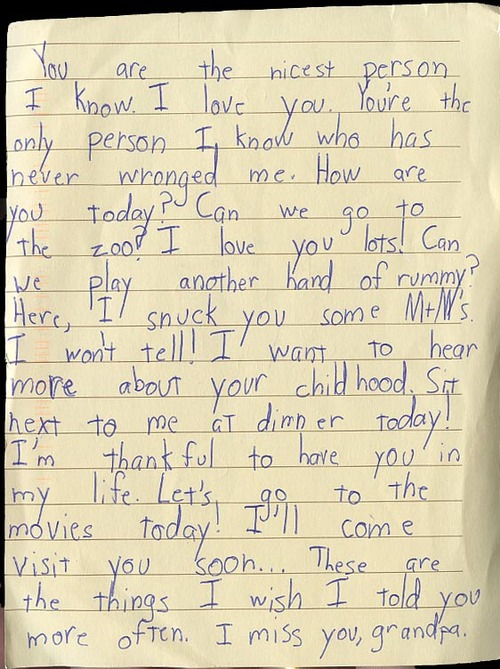 You are the nicest person
I know. I love you. You're the
only person I know who has
never wronged me. How are
you today? Can we go to
the zoo? I love you lots! Can
we play another hand of rummy?
Here, I snuck you some M+M's.
I won't tell! I want to hear
more about your childhood. Sit
next to me at dinner today!
I'm thankful to have you in
my life. Let's go to the
movies today! I'll come
visit you soon... These are
the things I wish I told you
more often. I miss you, grandpa.